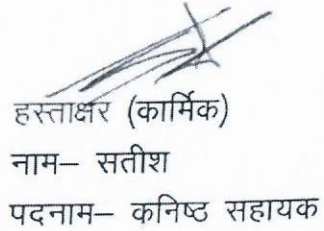 हस्ताक्षर (कार्मिक)
नाम– सतीश
पदनाम– कनिष्ठ सहायक